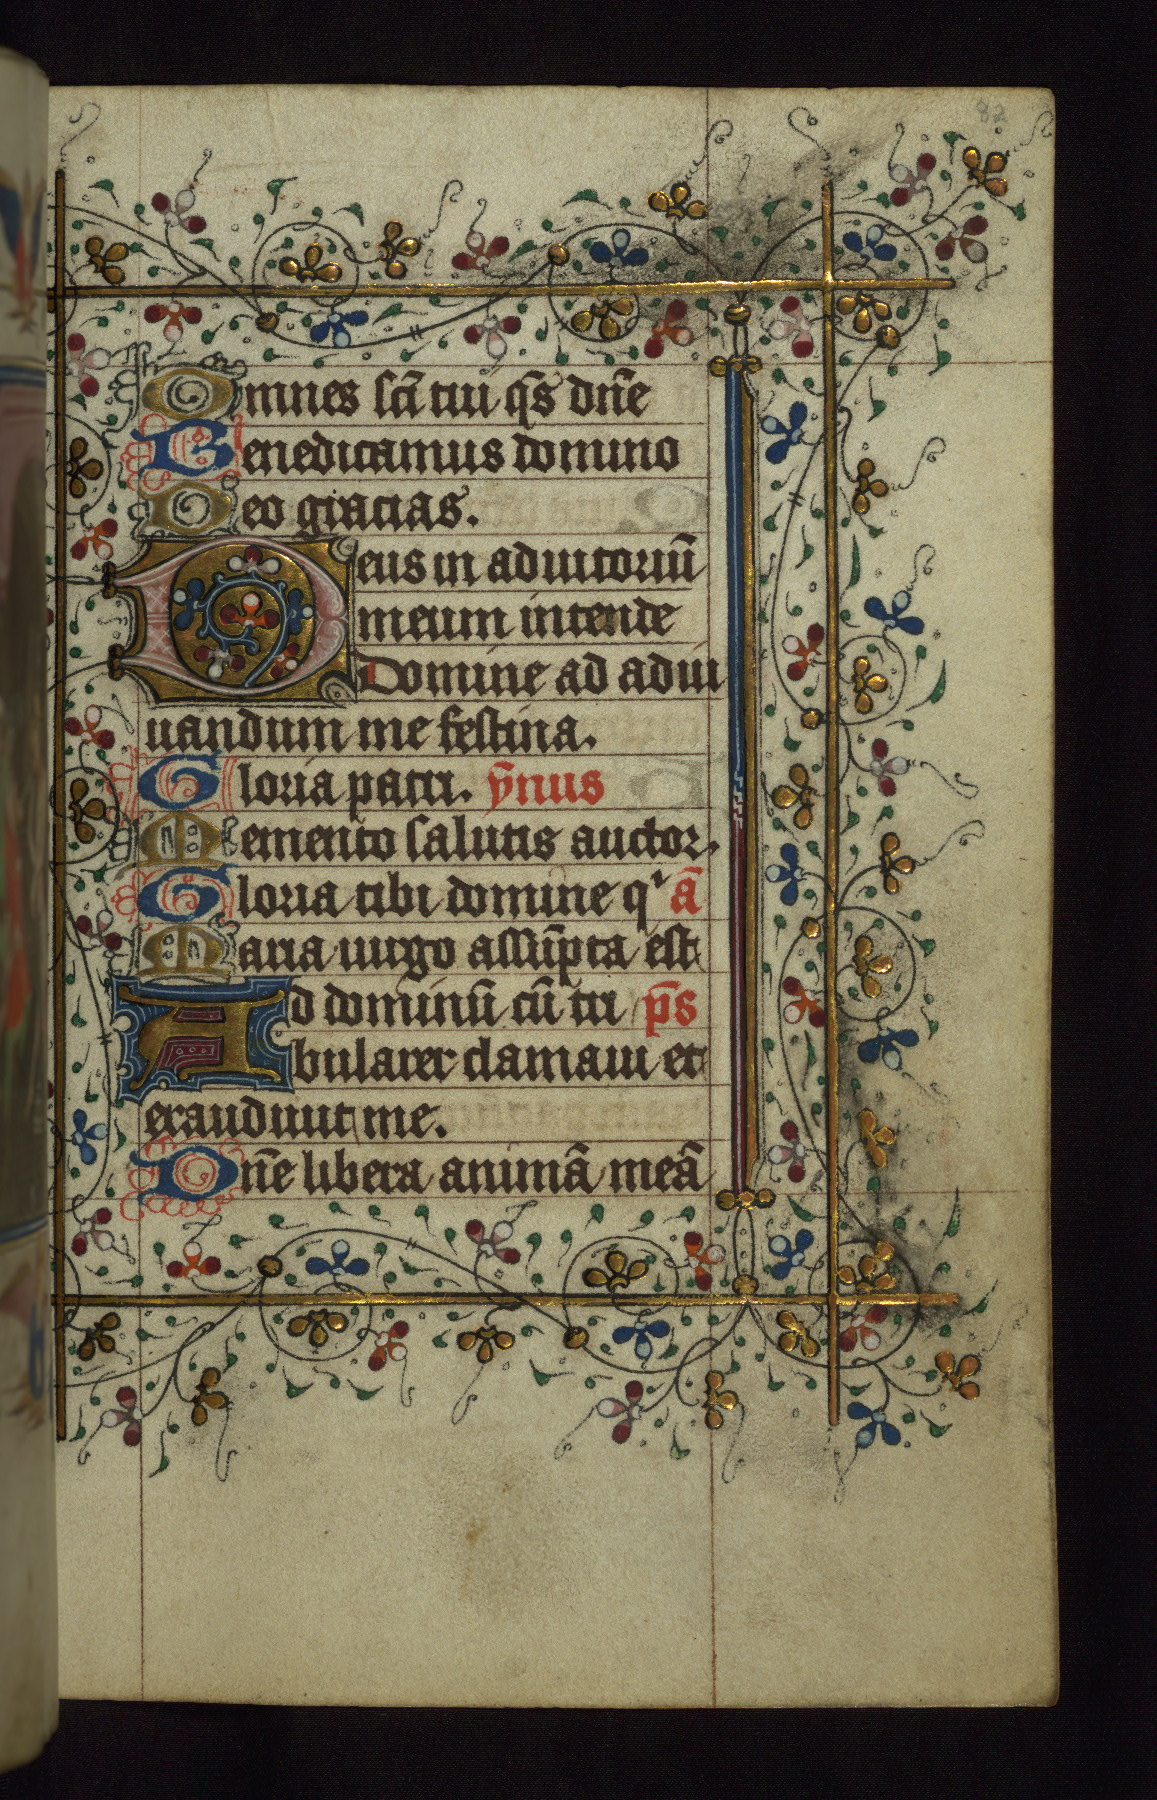 82
Omnes sc̄i tui q̄s dn̄e
Benedicamus domino
Deo gracias.
Deus in adiutoriū
meum intende
Domine ad adiu
uandum me festina.
Gloria patri. ȳnus
Memento salutis auctor.
Gloria tibi domine qⁱ ā
Maria uirgo assūpta est
Ad dominū cū tri p̄s
bularer clamaui et
exaudiuit me.
Dn̄e libera animā meā